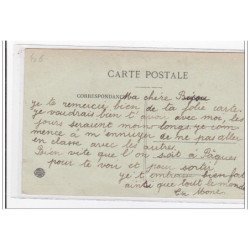 CARTE POSTALE
CORRESPONDANCE
Ma chère
je te remercie bien de ta jolie carte
je voudrais bien t'avoir avec moi, les
jours seraient moins longs. je com
mence à m'ennuyer de ne pas aller
en classe avec les autres.
Bien vite que l'on soit à Pâques
pour te voir et pour sortir.
je t'embrasse bien fort
ainsi que tout le monde